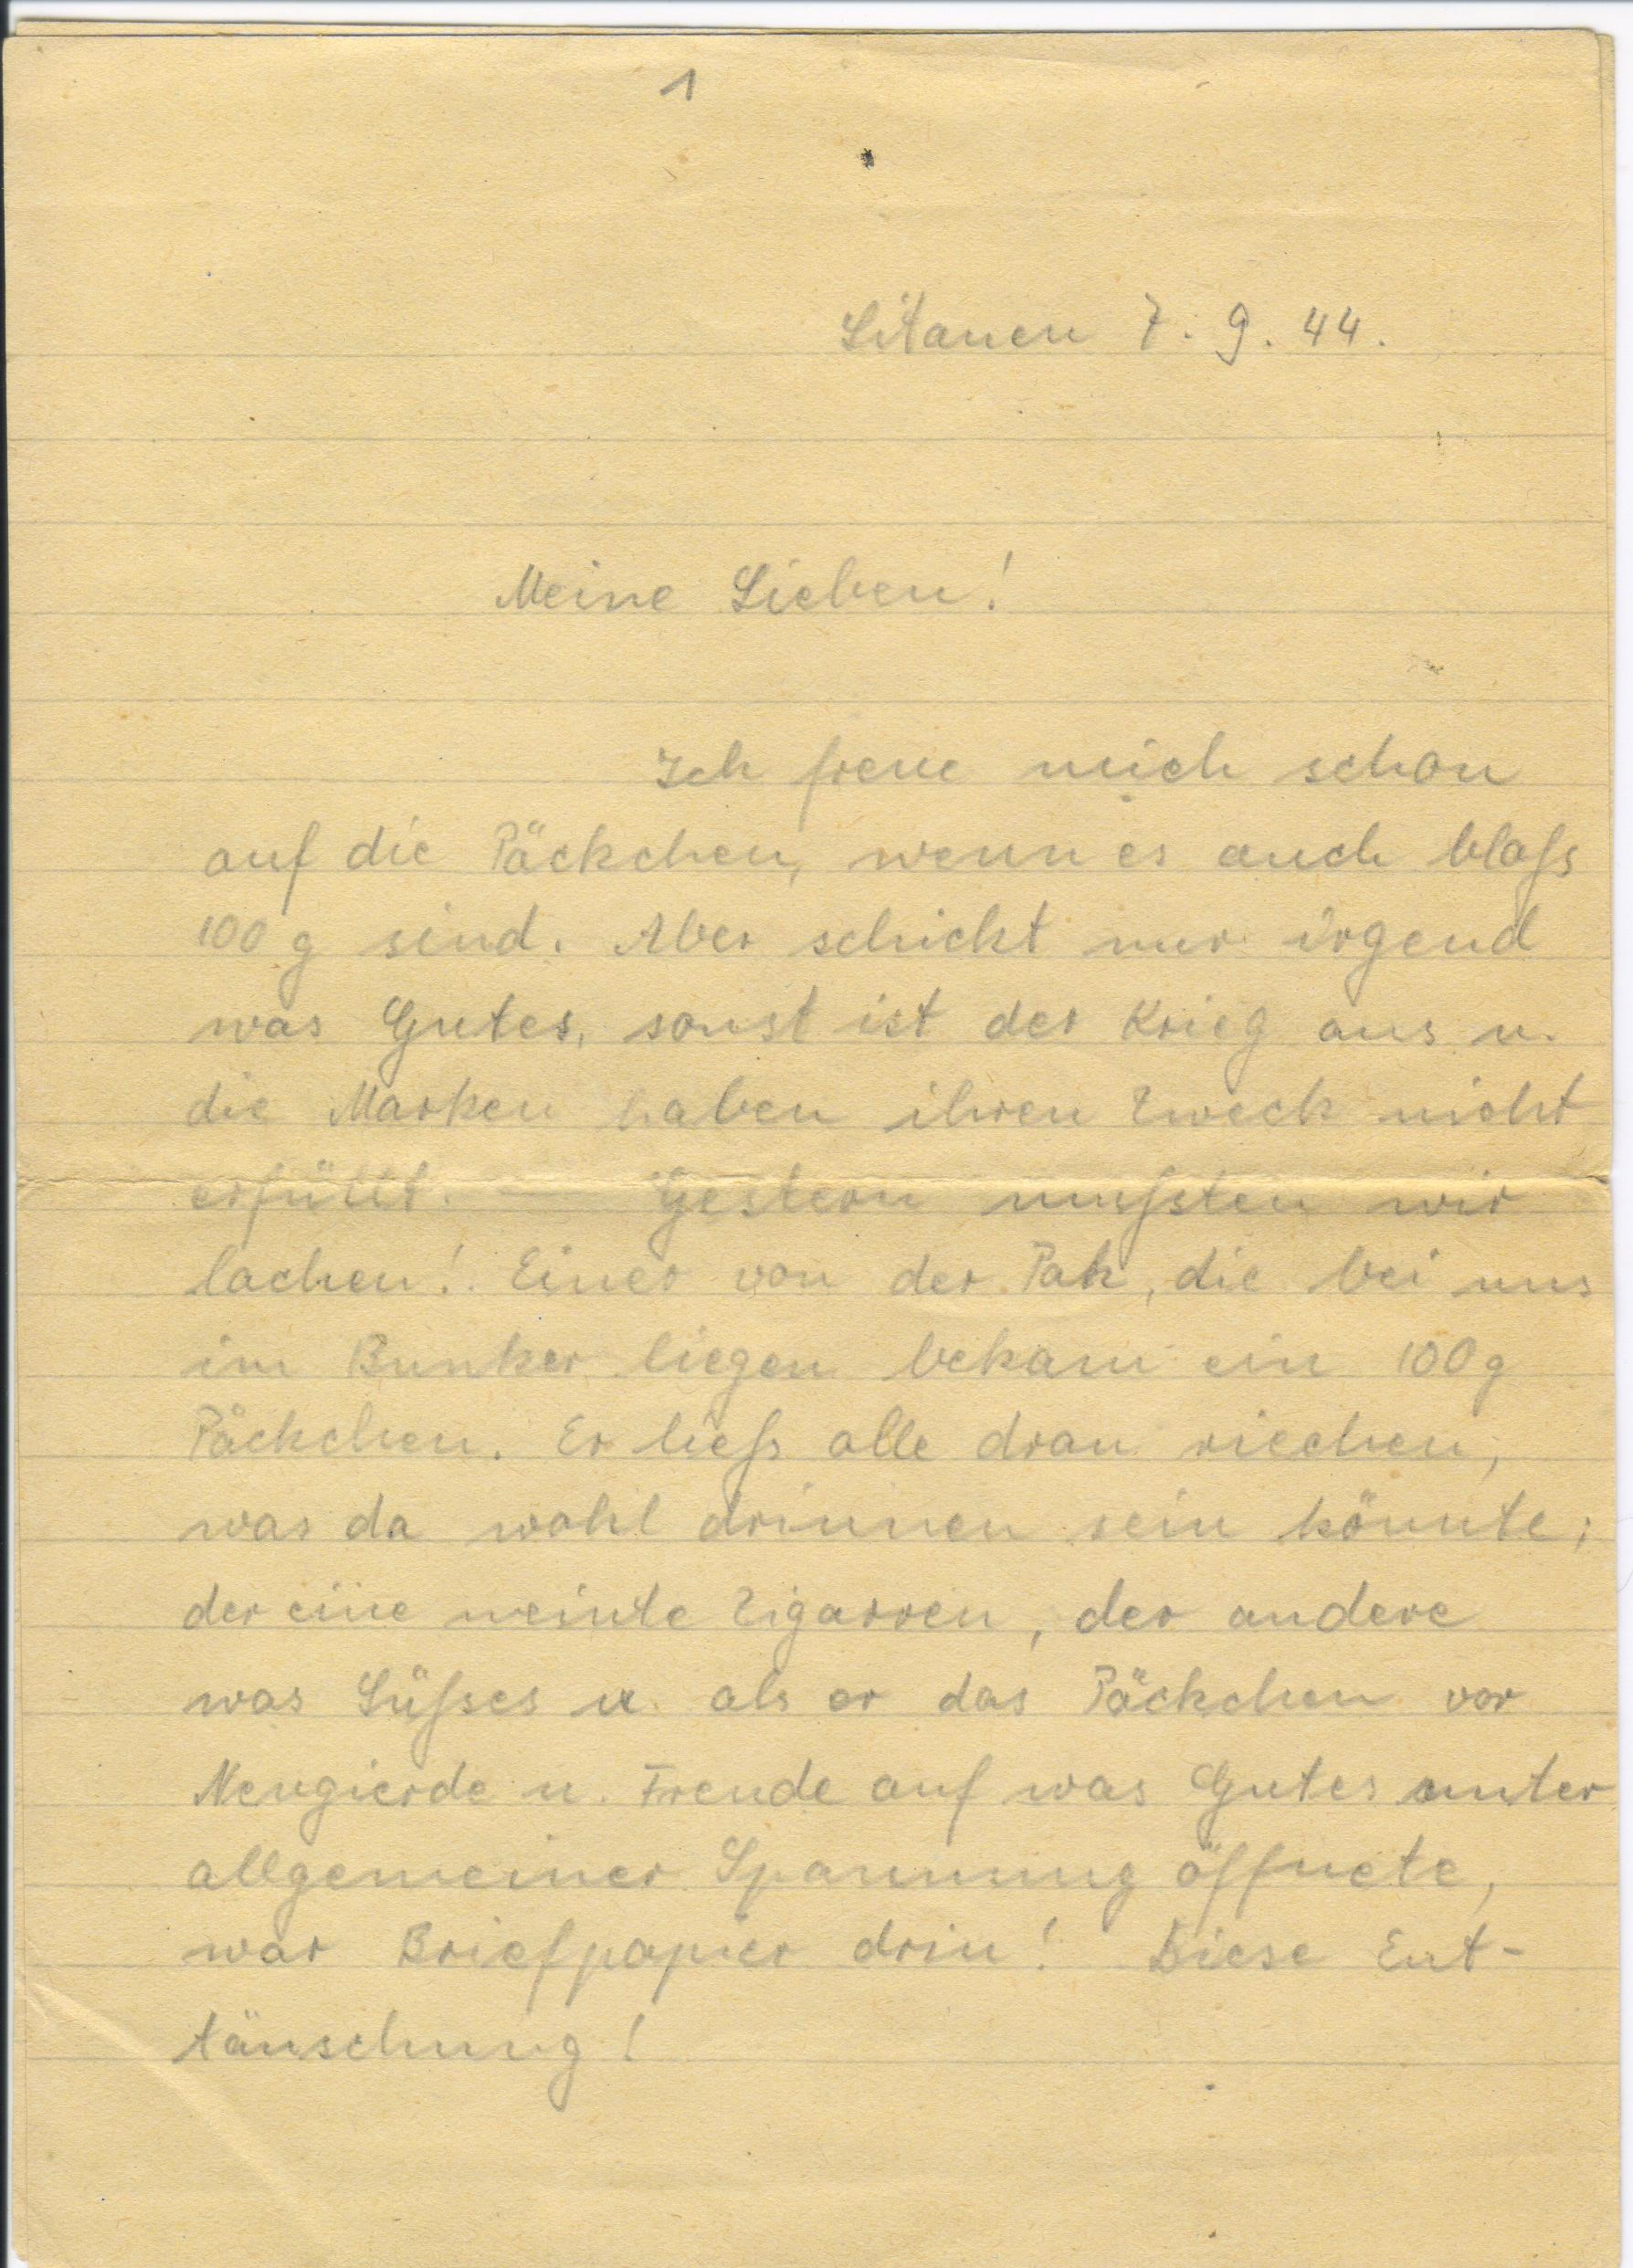 1
Litauen 7. 9. 44.
Meine Lieben!
Ich freue mich schon
auf die Päckchen, wenn es auch bloß
100 g sind. Aber schickt nur irgend
was Gutes, sonst ist der Krieg aus u.
die Marken haben ihren Zweck nicht
erfüllt. — Gestern mußten wir
lachen! Einer von der Pak, die bei uns
im Bunker liegen bekam ein 100 g
Päckchen. Er ließ alle dran riechen,
was da wohl drinnen sein könnte;
der eine meinte Zigarren, der andere
was Süßes u. als er das Päckchen vor
Neugierde u. Freude auf was Gutes unter
allgemeiner Spannung öffnete,
war Briefpapier drin! Diese Ent-
täuschung!